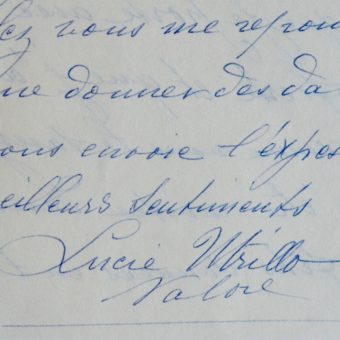 vous me repon
me donner des da
vous envoie l'expres
eilleurs sentiments
Lucie Utrillo
Valore